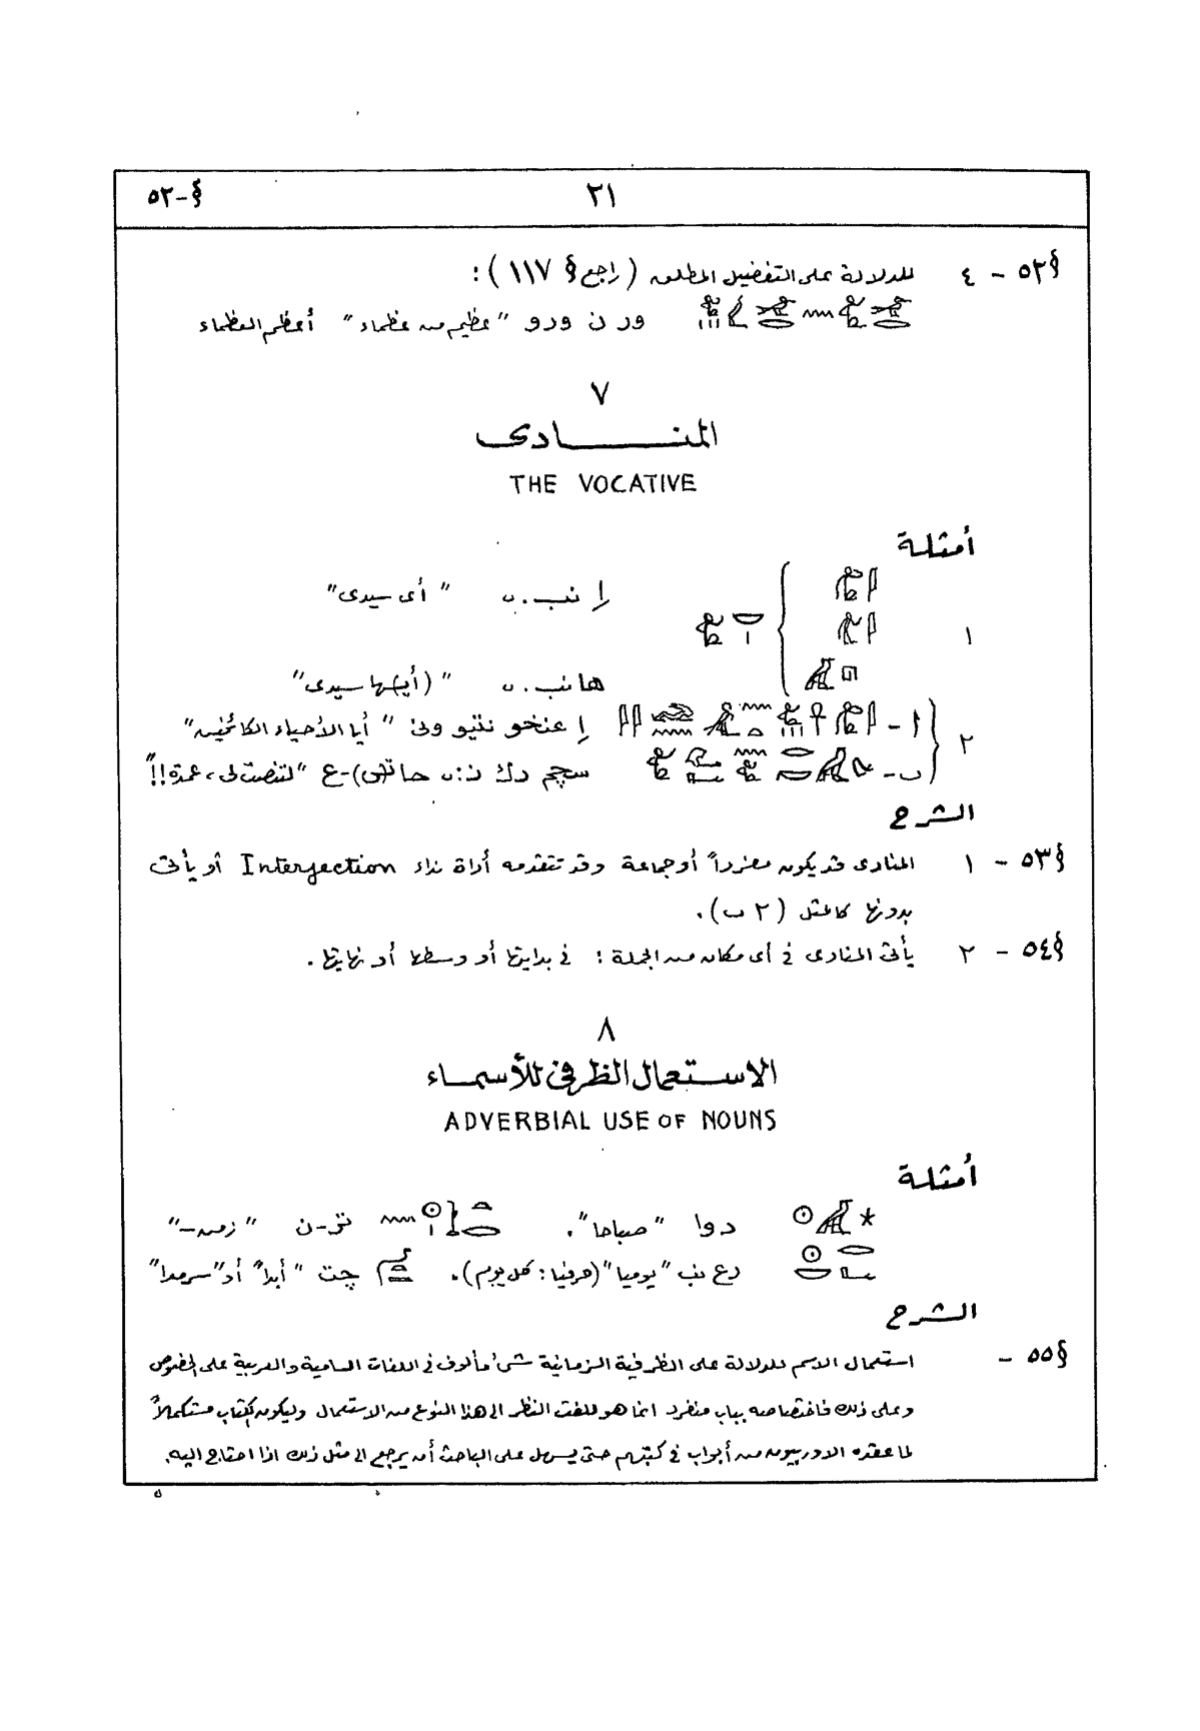 §-٥٢ ٢١
§٥٢ - ٤ للدلالة على التفضيل المطلق (راجع § ١١٧) :
ور ن ورو "عظيم من عظماء" أعظم العظماء
٧
المنـــــادى
THE VOCATIVE
أمثلة
إ نب.ى "أى سيدى"
١
ها نب.ى "(أي)ها سيدى"
٢ ا - إ عنخو نتيو ونى "أيا الأحياء الكائنين"
ب - سچم رك ن.ى حاتى-ع "لتنصت لى، عمدة!!"
الشرح
§٥٣ - ١ المنادى قد يكون مفرداً أو جماعة وقد تتقدمه أداة نداء Interjection أو يأتى
بدونها كالمثل (٢ ب).
§٥٤ - ٢ يأتى المنادى فى أى مكان من الجملة : فى بدايتها أو وسطها أو نهايتها.
٨
الاستعمال الظرفى للأسماء
ADVERBIAL USE OF NOUNS
أمثلة
دوا "صباحا". تر-ن "زمن-"
رع نب "يوميا" (حرفيا: كل يوم). چت "أبداً" أو "سرمدا"
الشرح
§٥٥ - استعمال الاسم للدلالة على الظرفية الزمانية شئ مألوف فى اللغات السامية والعربية على الخصوص
وعلى ذلك فاختصاصه بباب منفرد انما هو للفت النظر الى هذا النوع من الاستعمال وليكون الكتاب مستكملاً
لما عقده الاوربيون من أبواب فى كتبهم حتى يسهل على الباحث أن يرجع الى مثل ذلك اذا احتاج اليه.